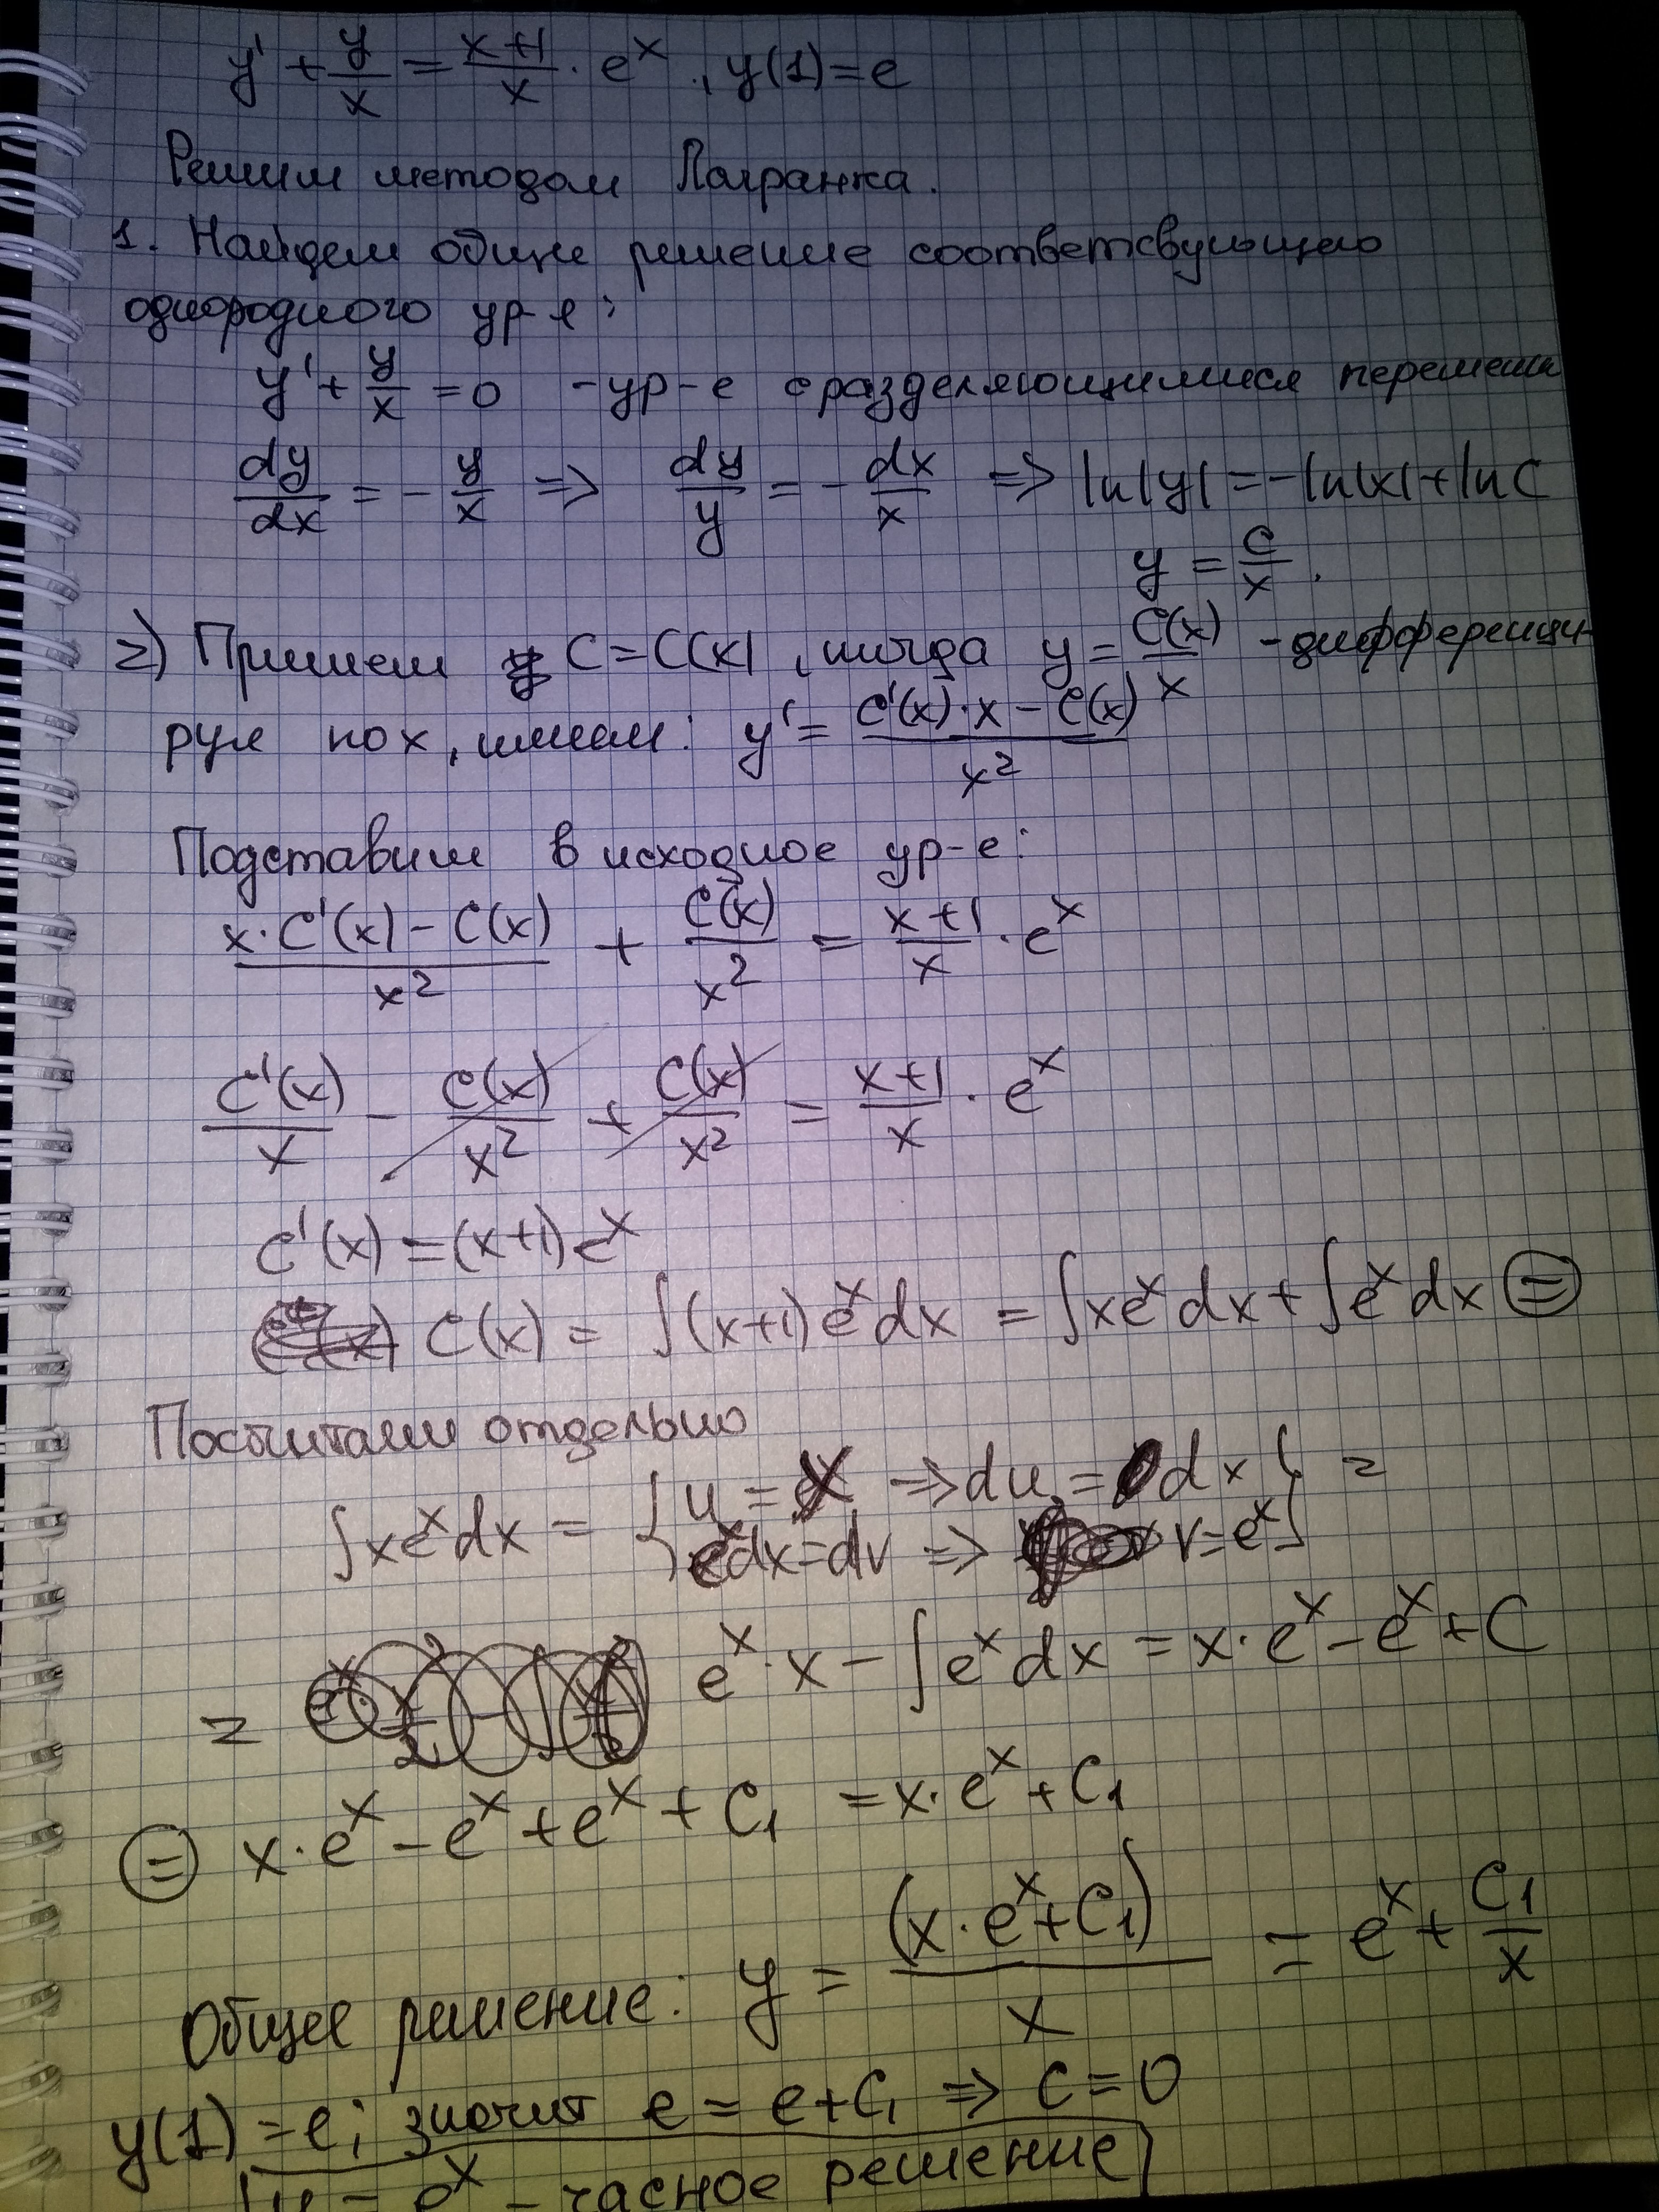 y' + y/x = (x+1)/x · e^x, y(1) = e
Решим методом Лагранжа.
1. Найдем общие решение соответсвующего
однородного ур-е:
y' + y/x = 0 - ур-е с разделяющимися перемен
dy/dx = - y/x => dy/y = - dx/x => ln|y| = -ln|x| + ln C
y = C/x.
2) Примем C = C(x), тогда y = C(x)/x - дифференци-
руя по x, имеем: y' = (C'(x)·x - C(x))/x²
Подставим в исходное ур-е:
(x·C'(x) - C(x))/x² + C(x)/x² = (x+1)/x · e^x
C'(x)/x - C(x)/x² + C(x)/x² = (x+1)/x · e^x
C'(x) = (x+1)e^x
C(x) = ∫(x+1)e^x dx = ∫xe^x dx + ∫e^x dx =
Посчитаем отдельно
∫xe^x dx = { u = x => du = dx } =
{ e^x dx = dv => v = e^x }
= e^x · x - ∫e^x dx = x·e^x - e^x + C
= x·e^x - e^x + e^x + C₁ = x·e^x + C₁
Общее решение: y = (x·e^x + C₁)/x = e^x + C₁/x
y(1) = e; значит e = e + C₁ => C = 0
y = e^x - часное решение